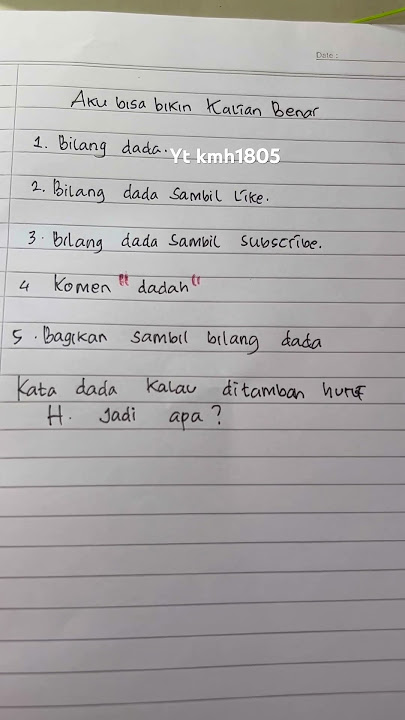 Date :
Aku bisa bikin Kalian Benar
1. Bilang dada.
Yt kmh1805
2. Bilang dada Sambil Like.
3. Bilang dada Sambil Subscribe.
4 Komen " dadah "
5. Bagikan Sambil bilang dada
Kata dada Kalau ditambah huruf
H. Jadi apa?